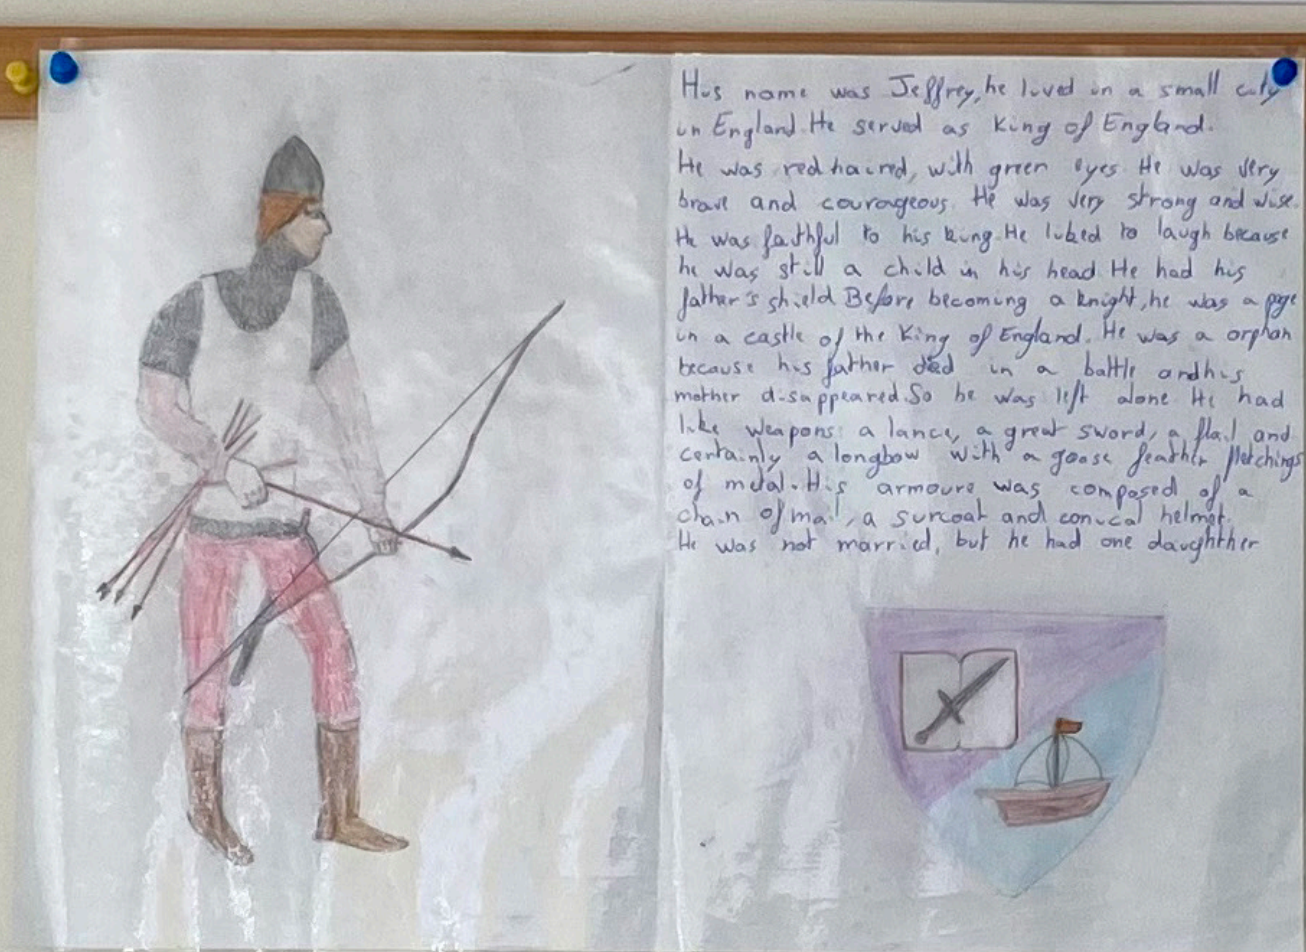 His name was Jeffrey, he lived in a small city
in England. He served as King of England.
He was red haired, with green eyes. He was very
brave and courageous. He was very strong and wise.
He was faithful to his king. He liked to laugh because
he was still a child in his head. He had his
father's shield. Before becoming a knight, he was a page
in a castle of the King of England. He was a orphan
because his father died in a battle and his
mother disappeared. So he was left alone. He had
like weapons: a lance, a great sword, a flail and
certainly a longbow with a goose feather fletchings
of metal. His armoure was composed of a
chain of mail, a surcoat and conical helmet.
He was not married, but he had one daughther